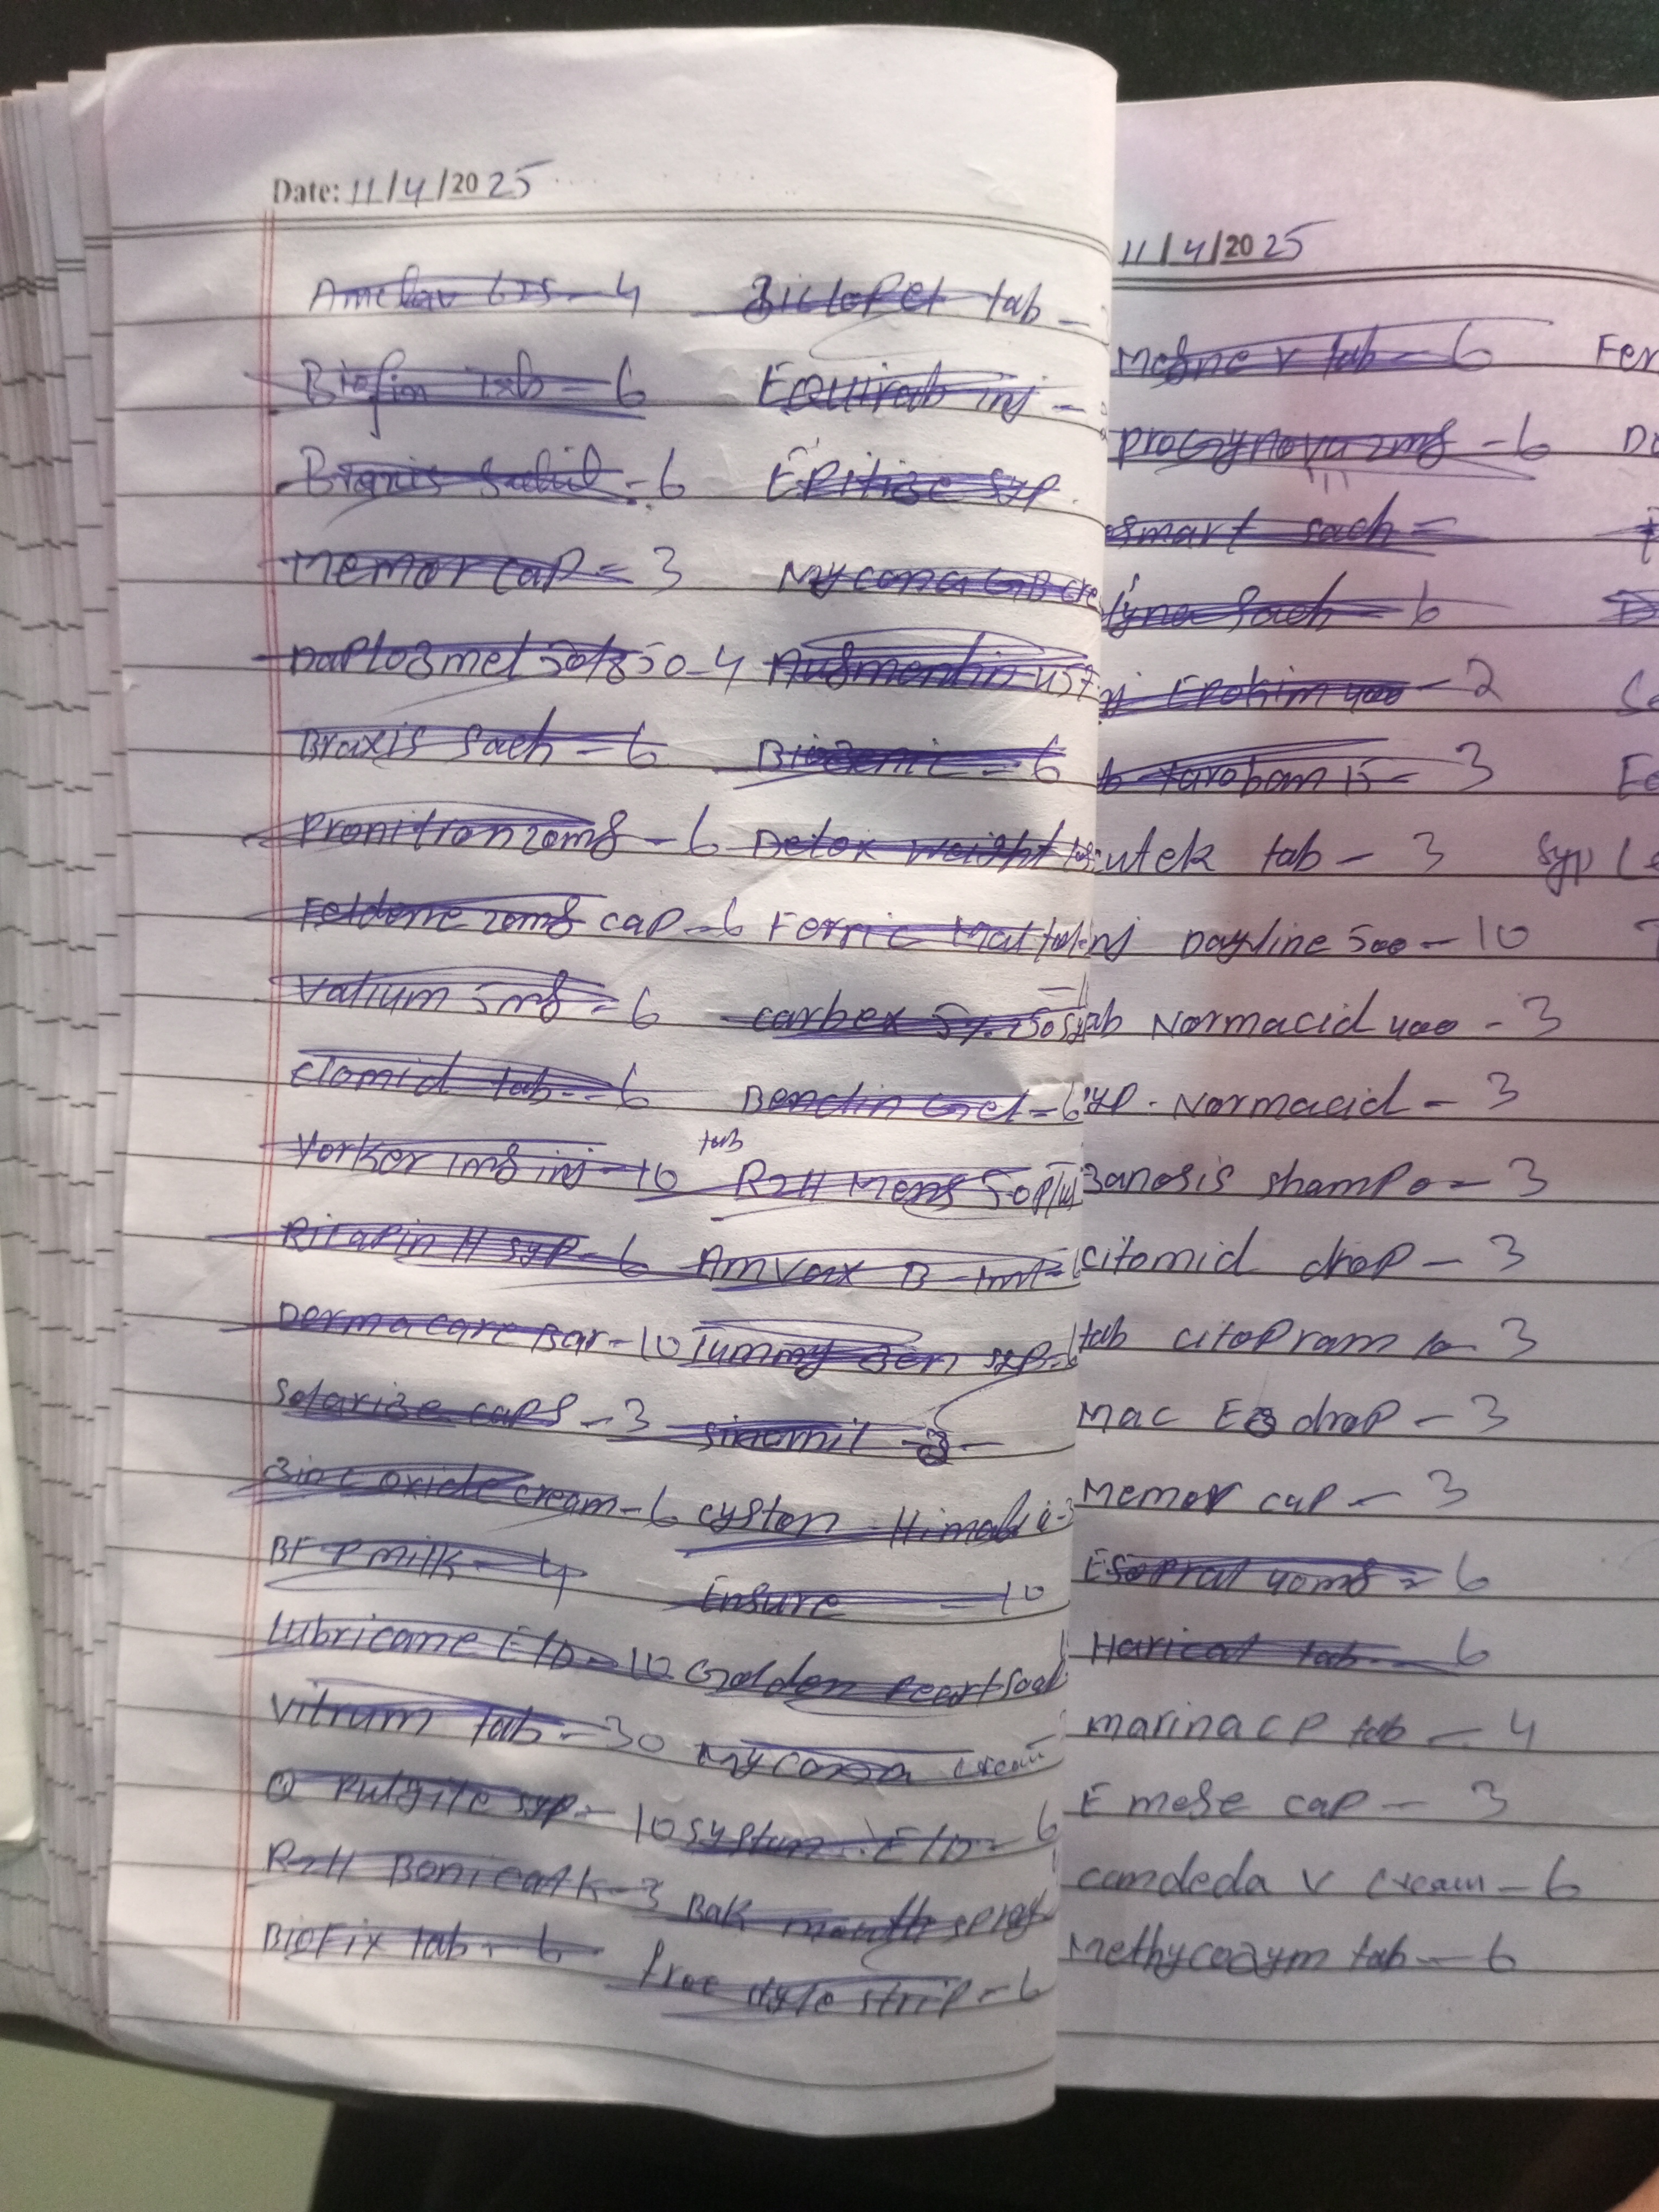 Date: 11/4/2025
Amclav 625 - 4
Biofim Tab = 6
- 6
Memor cap = 3
Daplozmet 50/850 - 4
Braxis Sach - 6
Pronitron 20mg - 6
Feldene 20mg cap - 6
Valium 5mg = 6
Clomid tab - 6
Yorker 1mg inj - 10
Ritapin H syp - 6
Dermacare Bar - 10
Solarize caps - 3
Zinc oxide cream - 6
BFP milk - 4
Lubricane E/D - 10
Vitrum tab - 30
Q Pulgite syp - 10
R2H Bonical K - 3
Biofix tab - 6
Ziclopet tab -
Equirab inj -
Epitize syp
Mycona GB cre
Augmentin 457
Biogenic = 6
Detox Weight
Ferric Mal
carbex 5%
Bendin Gel = 6
tab
R2H Mens 50 Pl
Amvax B - 1ml =
Tummy Zen syp -
sinomil - 3 -
cyston Himalia - 3
Ensure - 10
Golden Pearl Soa
Mycona cream
systan E/D - 6
Bak mouth spray
free style strip - 6
11/4/2025
tab - 6
Progynova 2mg - 6
smart sach =
lyna Sach - 6
Epokim 400 - 2
b Tarobam 15 - 3
cutek tab - 3
nj Dayline 500 - 10
ab Normacid 400 - 3
yp. Normacid - 3
Zanosis shampo - 3
Citomid drop - 3
tab citopram - 3
Mac Ez drop - 3
Memor cap - 3
Esopral 40mg = 6
Harical tab - 6
marina cp tab - 4
Emege cap - 3
candeda v cream - 6
Methycozym tab - 6
Fer
syp